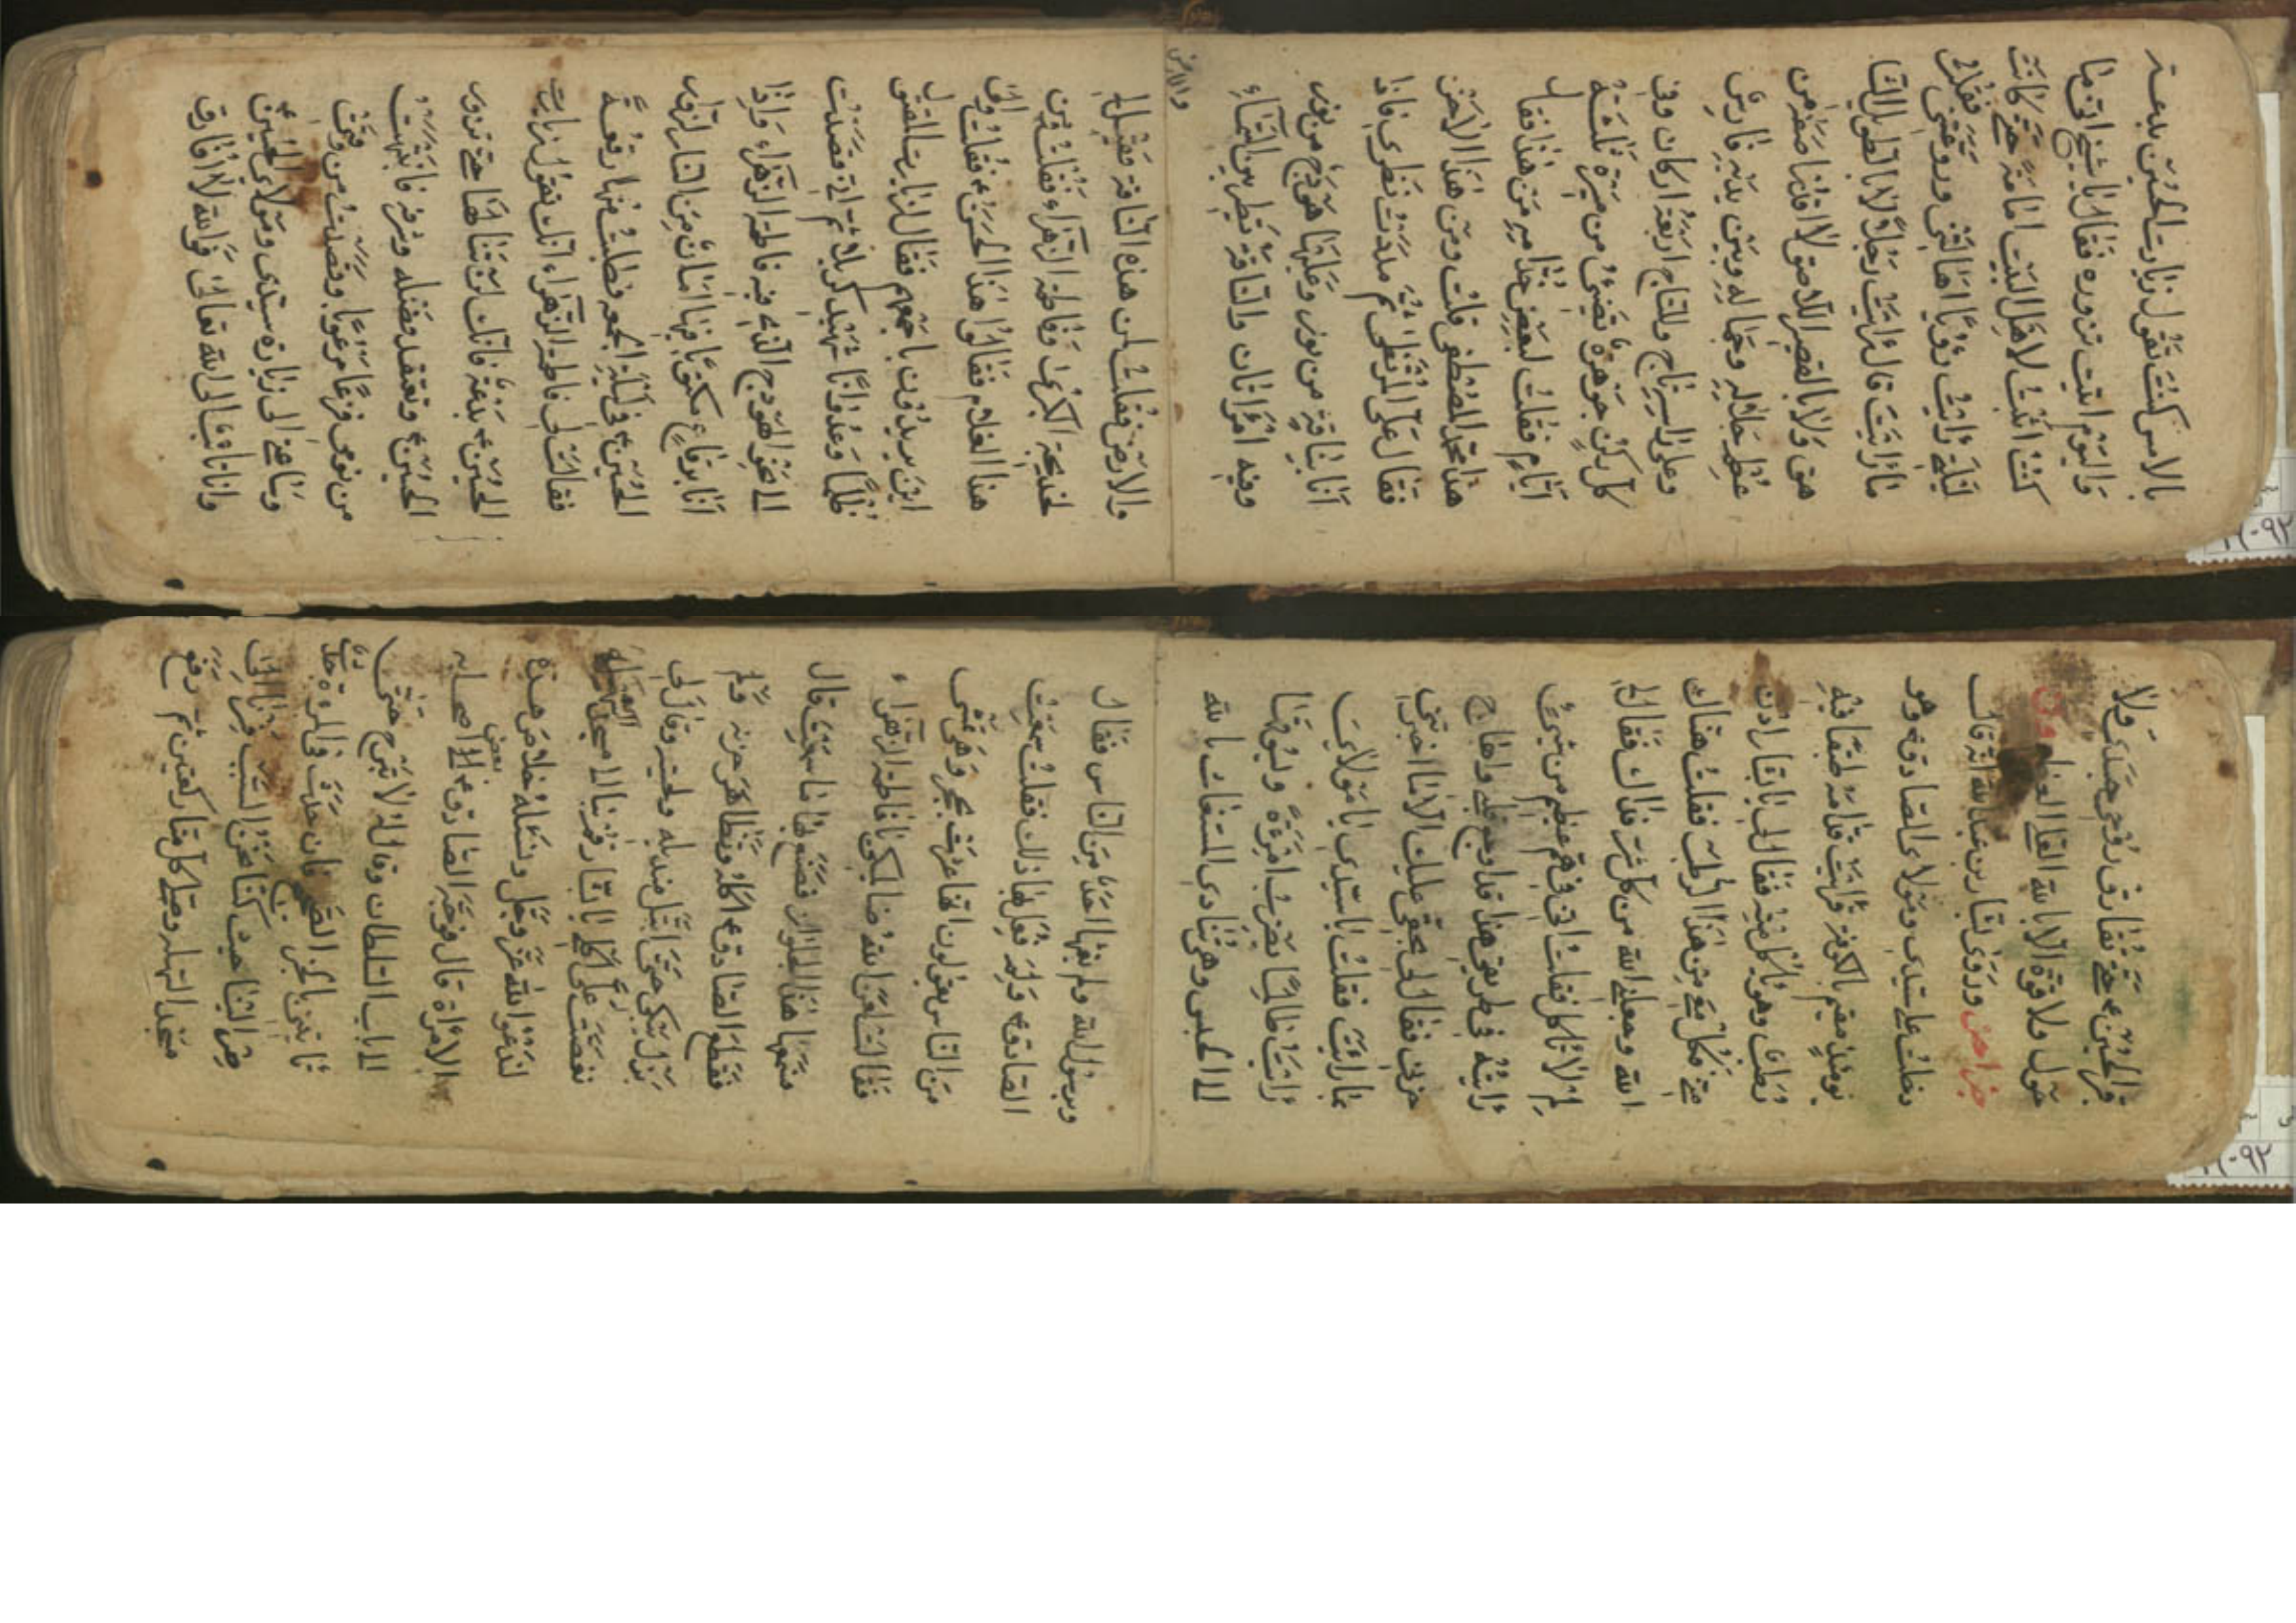 بالامس كنت تقول زيارت الحسين بدعة
واليوم اتيت تزوره فقال يا شيخ اني ما
كنت اثبت لاهل البيت امامة حتى كانت
ليلتي رايت رؤيا هالتني وروعتني فقلت
ما رايت قال رايت رجلا لا بالطويل الشا
هق ولا بالقصير اللاصق لا اقدر اصفه من
عظم جلاله وجماله وبين يديه فارس
وعلى راسه تاج وللتاج اربعة اركان وفي
كل ركن جوهرة تضيئ من مسيرة ثلثة
ايام فقلت لبعض خدامه من هذا فقال
هذا محمد المصطفى قلت ومن هذا الاخر
فقال علي المرتضى ثم مددت نظري فاذا
انا بناقة من نور وعليها هودج من نور
وفيه امراتان والناقة تطير بين السماء
والارض
والارض فقلت لمن هذه الناقة فقيل لي
لخديجة الكبرى وفاطمة الزهراء فقلت ومن
هذا الغلام فقالوا هذا الحسن ع فقلت والى
اين يريدون باجمعهم فقال لزيارت المقتول
ظلما وعدوانا شهيد كربلا ثم اني قصدت
الى نحو الهودج الذي فيه فاطمة الزهراء واذا
انا برقاع مكتوبا فيها امان من النار لزوار
الحسين ع في ليلة الجمعه فطلبت منها رقعة
فقالت لي فاطمة الزهراء انك تقول زيارت
الحسين ع بدعة فانك لن تنالها حتى تزور
الحسين ع وتعتقد فضله وشرفه فانتبهت
من نومي فزعا مرعوبا وقصدت من وقتي
وساعتي الى زيارة سيدي ومولاي الحسين ع
وانا تائب الى الله تعالى فوالله لا افارق
قبر الحسين ع حتى تفارق روحي جسدي ولا
حول ولا قوة الا بالله العلي العظيم
خبر اخر وروى بشار بن عبدالله انه قال
دخلت على سيدي ومولاي الصادق ع وهو
يومئذ مقيم بالكوفة فرايت قدامه طبقا فيه
رطب وهو ياكل منه فقال لي يا بشار ادن
مني فكل معي من هذا الرطب فقلت هناك
الله وجعلني الله من كل شر فداك فقال لي
لم لا تاكل فقلت اني في هم عظيم من شيئ
رايته في طريقي هذا قد اوجع قلبي واهاج
حزني فقال لي بحقي عليك الا ما اخبرتني
بما رايت فقلت يا سيدي يا مولاي
رايت ظالما يضرب امرءة ويسوقها
الى الحبس وهي تنادي المستغاث بالله
وبرسول الله ولم يغثها احد من الناس فقال
الصادق ع ولم فعل بها ذلك فقلت سمعت
من الناس يقولون انها عثرت بحجر وهي تمشي
فقالت لعن الله ظالميكي يا فاطمة الزهراء
فسمعها هذا الجلواز فصنع بها ما سمعت قال
فقطع الصادق ع اكله وتظاهر حزنه ولم
يزل يبكي حتى ابتل منديله ولحيته وقال لي
نغصت علي اكلي يا بشار قم بنا الى مسجد السهله
لندعو الله عز وجل ونسئله خلاص هذه
الامراة قال فوجه الصادق ع بعض اصحابه
الى باب السلطان وقال له لا تبرح حتى
تاتيني بالخبر الصحيح فان حدث في المرءة حدث
صر الينا حيث كنا
مسجد السهله وصلى كل منا ركعتين ثم رفع